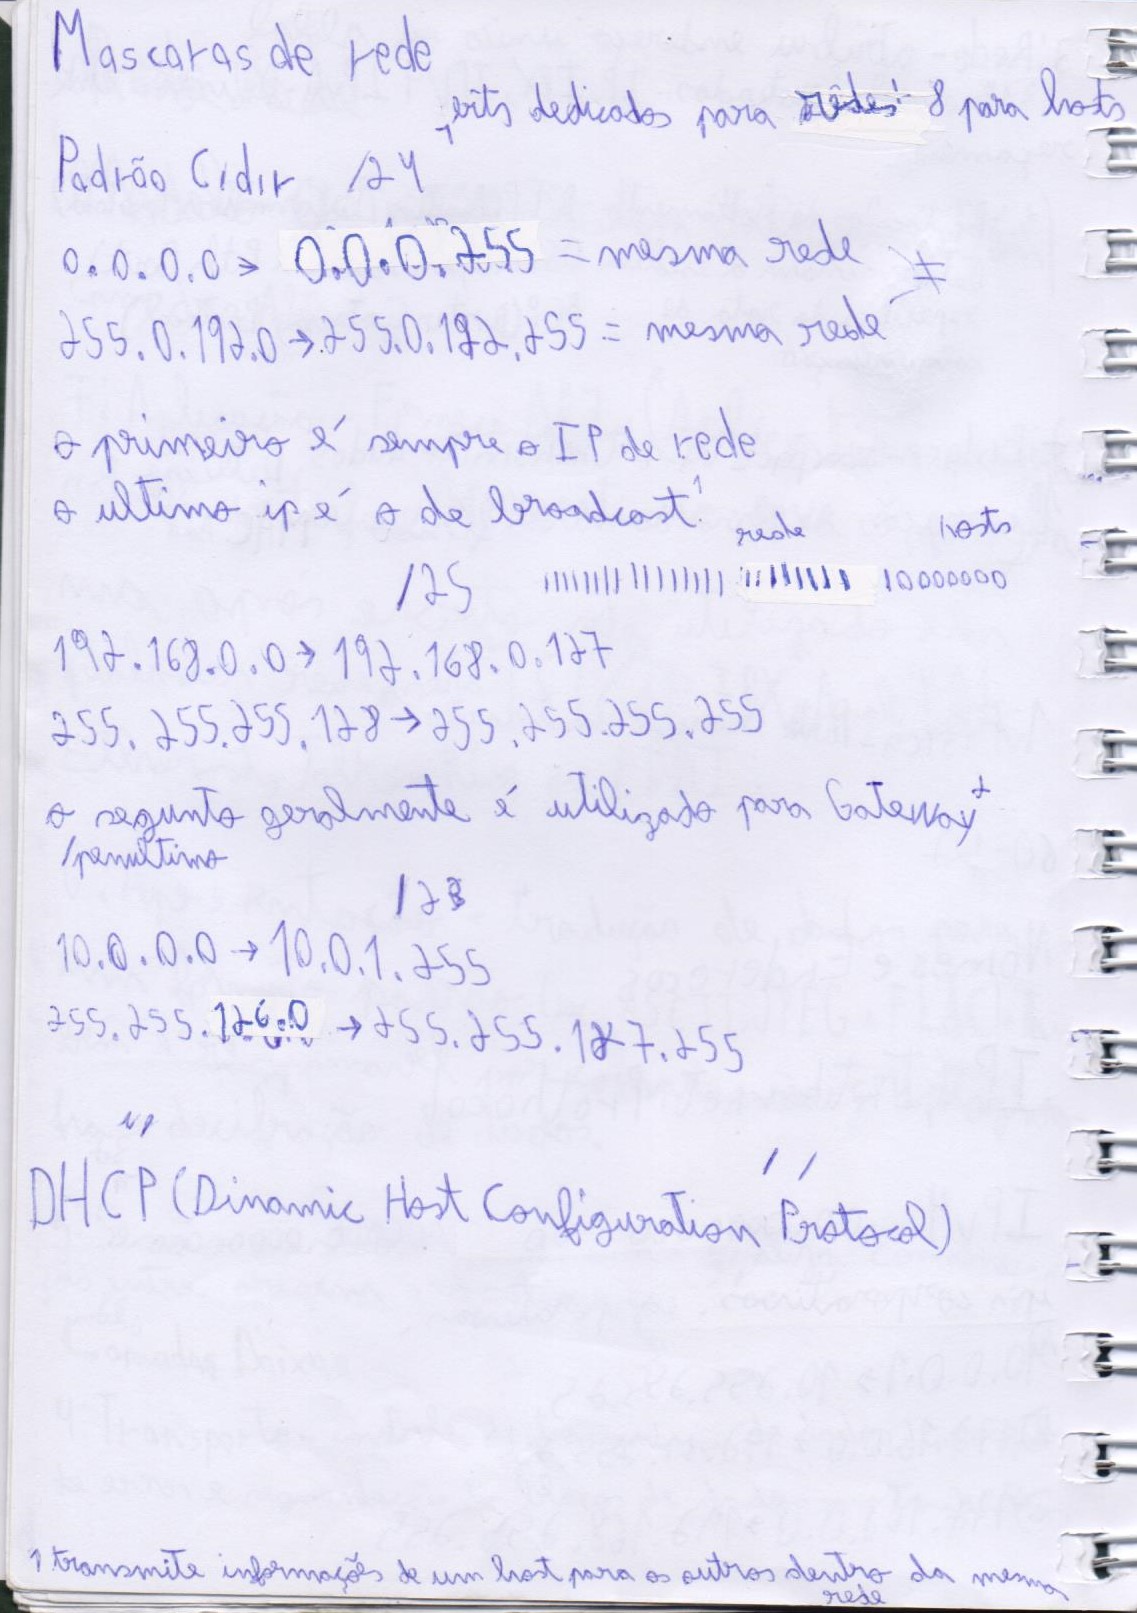 Mascaras de rede
bits dedicados para redes 8 para hosts
Padrão Cidir /24
0.0.0.0 → 0.0.0.255 = mesma rede
≠
255.0.192.0 → 255.0.192.255 = mesma rede
o primeiro é sempre o IP de rede
o ultimo ip é o de broadcast¹
rede hosts
/25 11111111 11111111 11111111 10000000
192.168.0.0 → 192.168.0.127
255.255.255.128 → 255.255.255.255
o segunto geralmente é utilizado para Gateway²
/penultimo
/23
10.0.0.0 → 10.0.1.255
255.255.126.0 → 255.255.127.255
DHCP (Dinamic Host Configuration Protocol)
1 transmite informações de um host para os outros dentro da mesma
rede